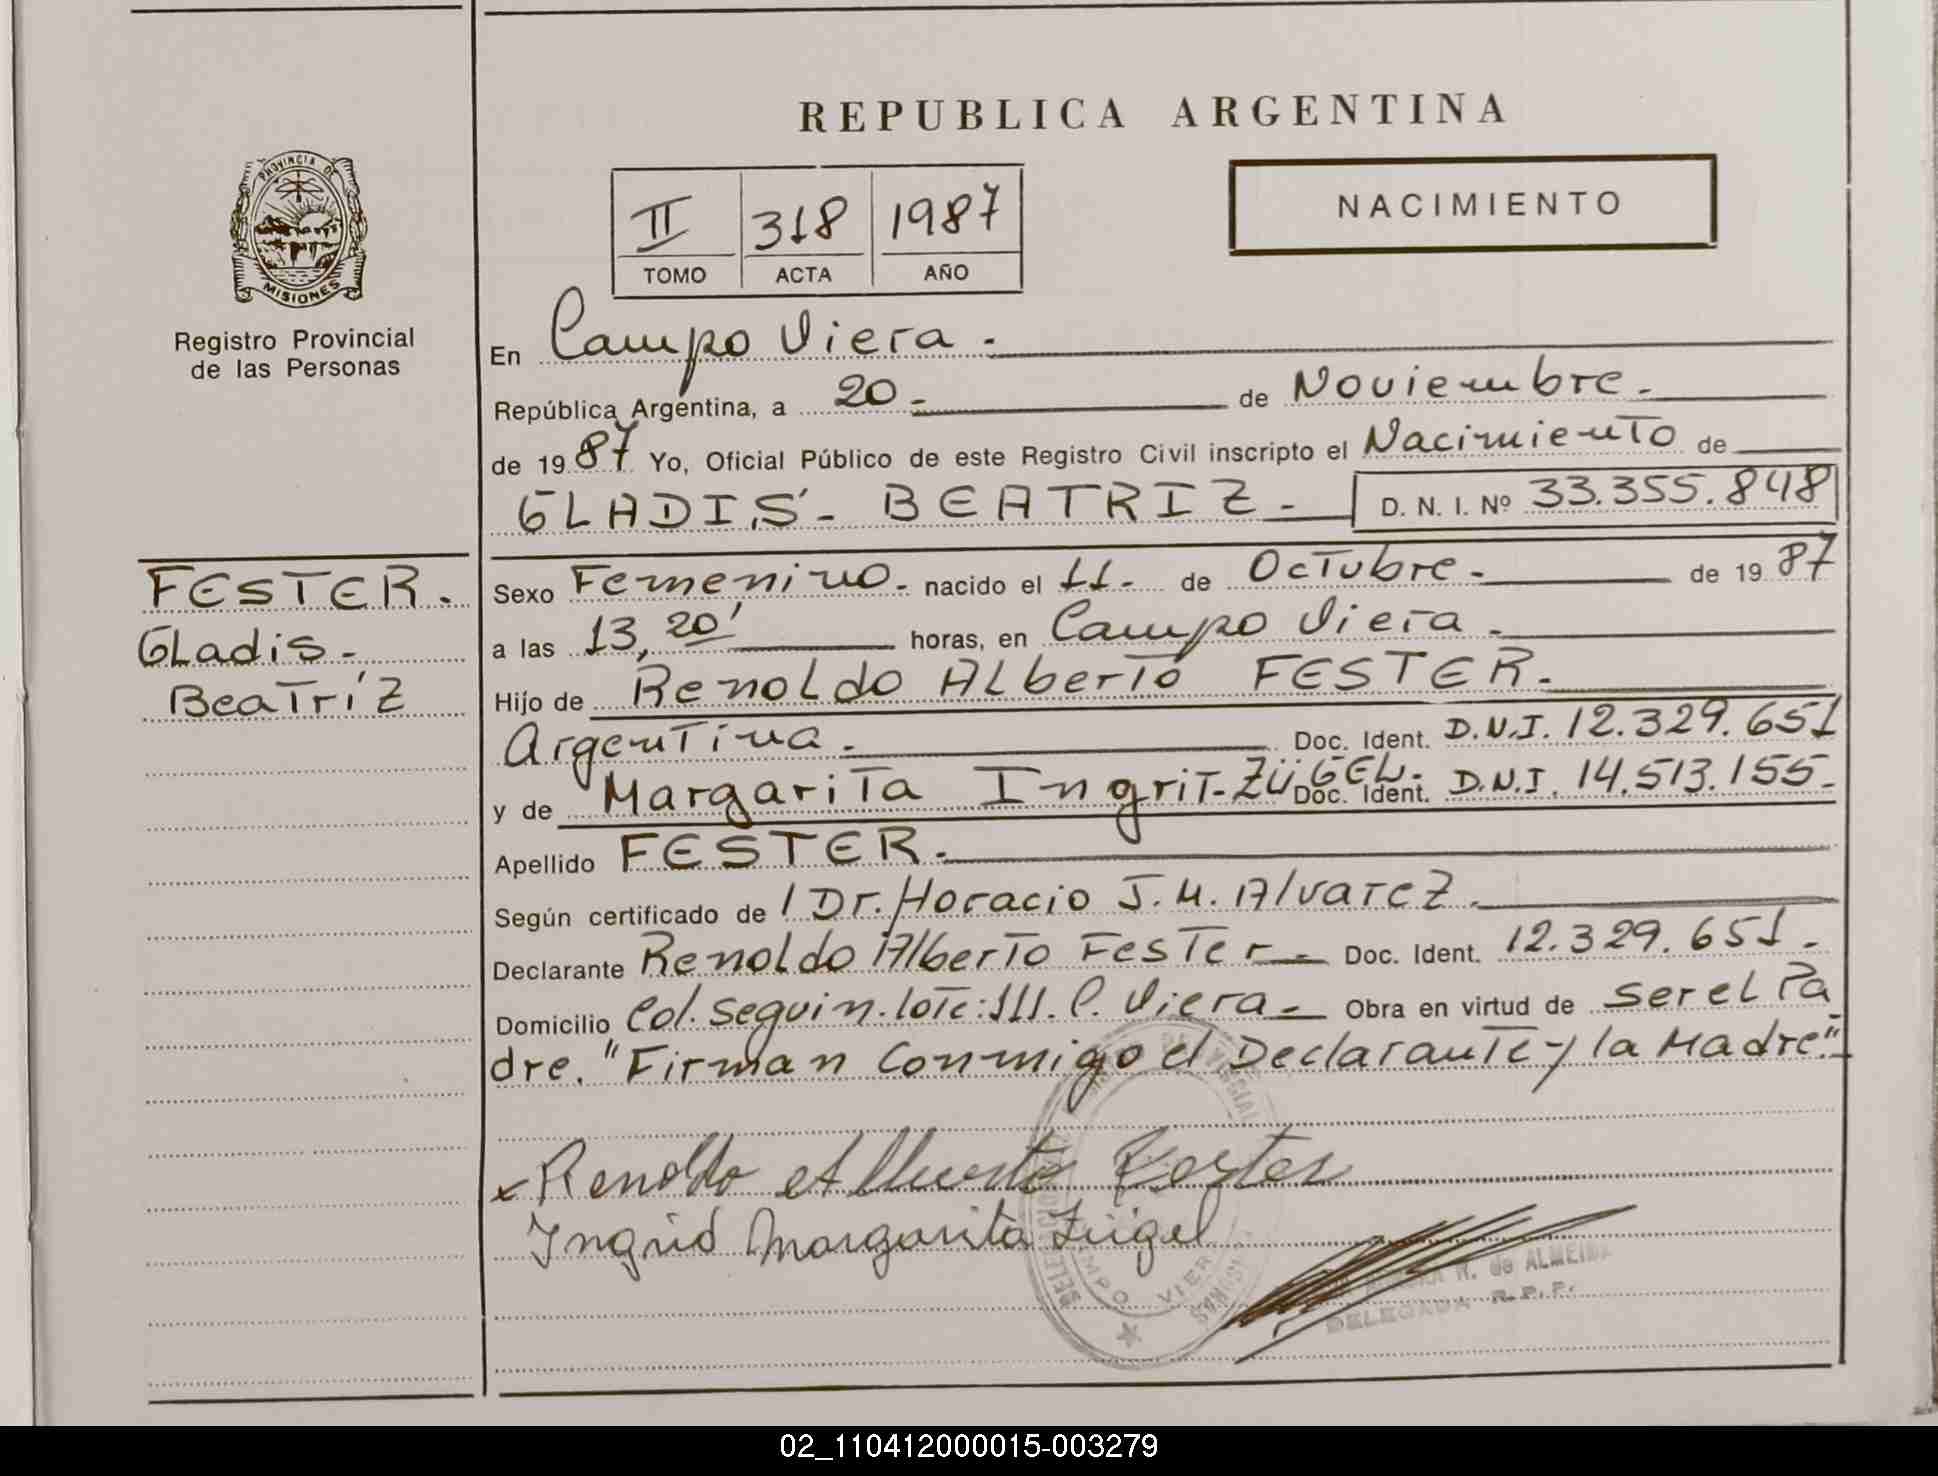 REPUBLICA ARGENTINA
PROVINCIA DE
MISIONES
Registro Provincial
de las Personas
II 318 1987
TOMO ACTA AÑO
NACIMIENTO
En Campo Viera.
República Argentina, a 20 de Noviembre.
de 1987 Yo, Oficial Público de este Registro Civil inscripto el Nacimiento de
GLADIS. BEATRIZ. D. N. I. Nº 33.355.848
FESTER.
Gladis.
Beatríz
Sexo Femenino. nacido el 11. de Octubre. de 1987
a las 13,20' horas, en Campo Viera.
Hijo de Renoldo Alberto FESTER.
Argentina. Doc. Ident. D.N.I. 12.329.651
y de Margarita Ingrit-ZÜGEL. Doc. Ident. D.N.I. 14.513.155.
Apellido FESTER.
Según certificado de / Dr. Horacio J. M. Alvarez.
Declarante Renoldo Alberto Fester. Doc. Ident. 12.329.651.
Domicilio Col. Seguin. lote: 111. C. Viera. Obra en virtud de ser el Pa
dre. "Firman Conmigo el Declarante y la Madre".
x Renoldo Alberto Fester
Ingrid Margarita Zügel
CAMPO VIERA
MISIONES
R. de ALMEIDA
DELEGADA R.P.P.
02_110412000015-003279